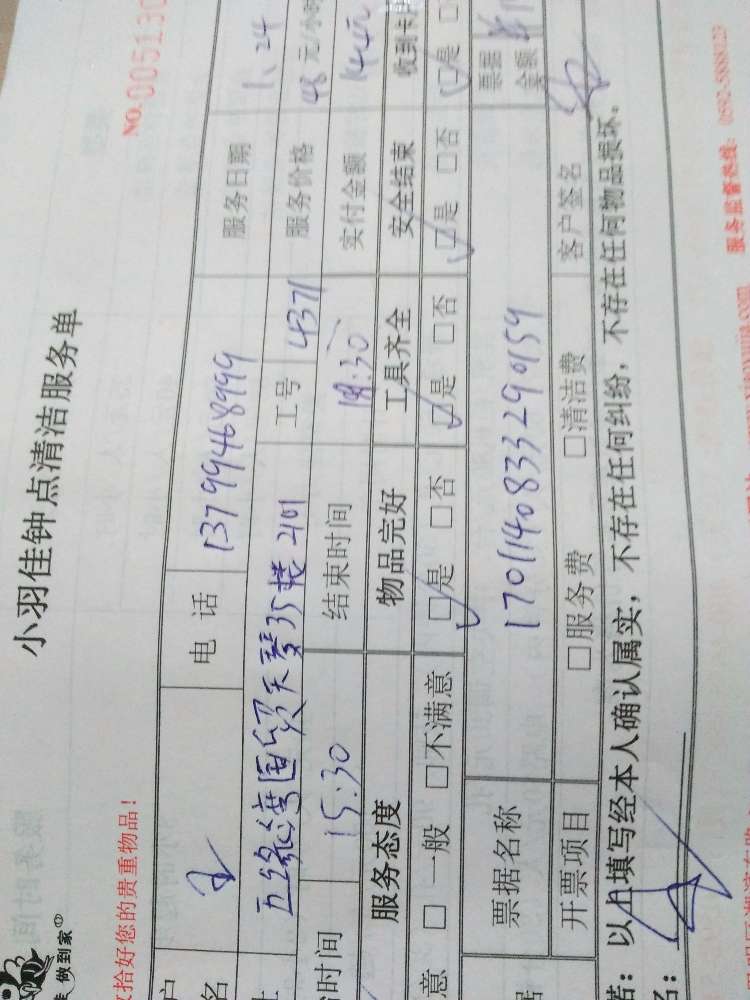 做到家
小羽佳钟点清洁服务单
NO.005130
收拾好您的贵重物品!
电 话 13799468999 服务日期 1、24
五缘湾国贸天琴35楼2101 工号 4371 服务价格 48 元/小时
时间 15:30 结束时间 18:30 实付金额 144元
服务态度 物品完好 工具齐全 安全结束 收到卡
意 □一般 □不满意 □是 □否 □是 □否 □是 □否 □是
票据名称 17011408333290159 票据金额
开票项目 □服务费 □清洁费 客户签名
诺:以上填写经本人确认属实,不存在任何纠纷,不存在任何物品损坏。
名:
服务监督热线: 0592-5888123